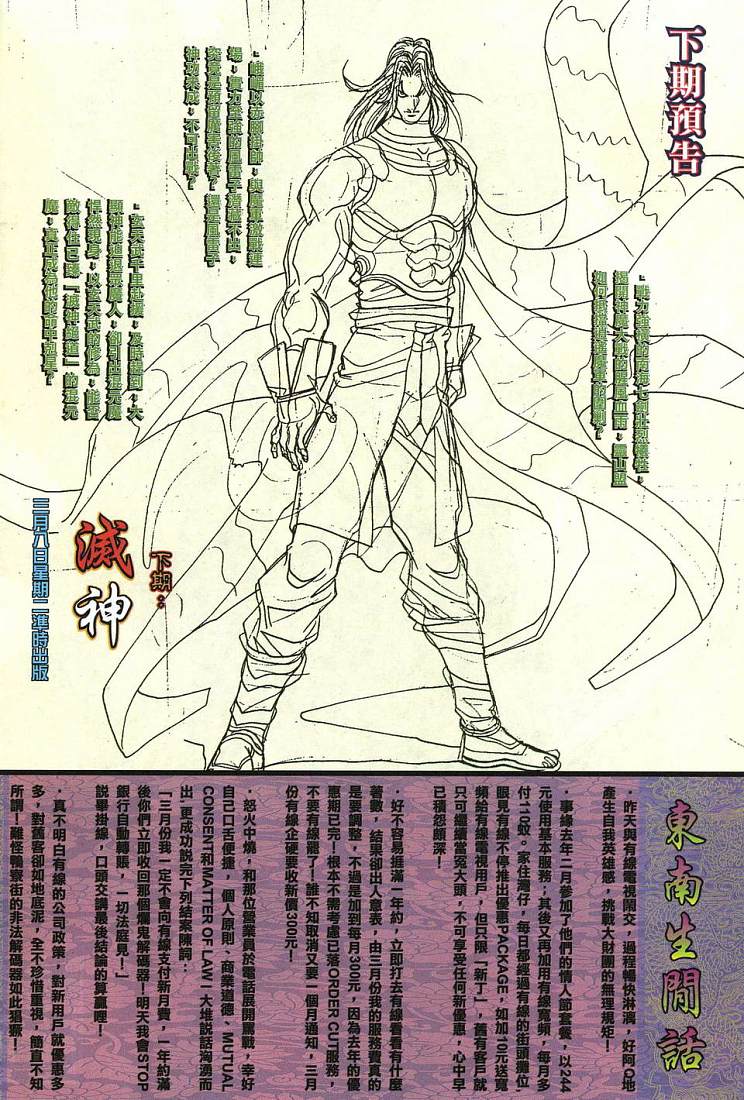 下期預告
‧戰力
揭開神魔大戰的腥風血雨；靈山盟
‧峨嵋以赤腳掛帥；與魔軍激戰連
場；實力堅強的風雷子
神功未成；不可出戰？
‧玄天武千里赴援；及時趕到；大
開神能迫退無魔人；卻引出混元魔
悍然現身；以玄天武的修為；能否
敵得住已曉「滅神極道」的混元
魔；真正成為他的命中剋星？
下期：
滅神
三月八日星期二準時出版
東南生閒話
‧昨天與有線電視鬧交，過程暢快淋漓，好阿Q地
產生自我英雄感，挑戰大財團的無理規矩！
‧事緣去年二月參加了他們的情人節套餐，以244
元使用基本服務；其後又再加用有線寬頻，每月多
付110蚊。家住灣仔，每日都經過有線的街頭攤位，
眼見有線不停推出優惠PACKAGE，如加10元送寬
頻給有線電視用戶，但只限「新丁」，舊有客戶就
只可繼續當冤大頭，不可享受任何新優惠，心中早
已積怨頗深！
‧好不容易捱滿一年約，立即打去有線看看有什麼
著數，結果卻出人意表，由三月份我的服務費真的
是要調整，不過是加到每月300元，因為去年的優
惠期已完！根本不需考慮已落ORDER CUT服務，
不要有線罷了！誰不知取消又要一個月通知，三月
份有線企硬要收新價300元！
‧怒火中燒，和那位營業員於電話展開罵戰，幸好
自己口舌便捷，個人原則、商業道德、MUTUAL
CONSENT和MATTER OF LAW！大堆説話淘湧而
出，更成功説完下列結案陳詞：
「三月份我一定不會向有線支付新月費，一年約滿
後你們立即收回那個爛鬼解碼器！明天我會STOP
銀行自動轉賬，一切法庭見！」
説畢掛線，口頭交講最後結論的算贏哩！
‧真不明白有線的公司政策，對新用戶就優惠多
多，對舊客卻如地底泥，全不珍惜重視，簡直不知
所謂！難怪鴨寮街的非法解碼器如此猖獗！